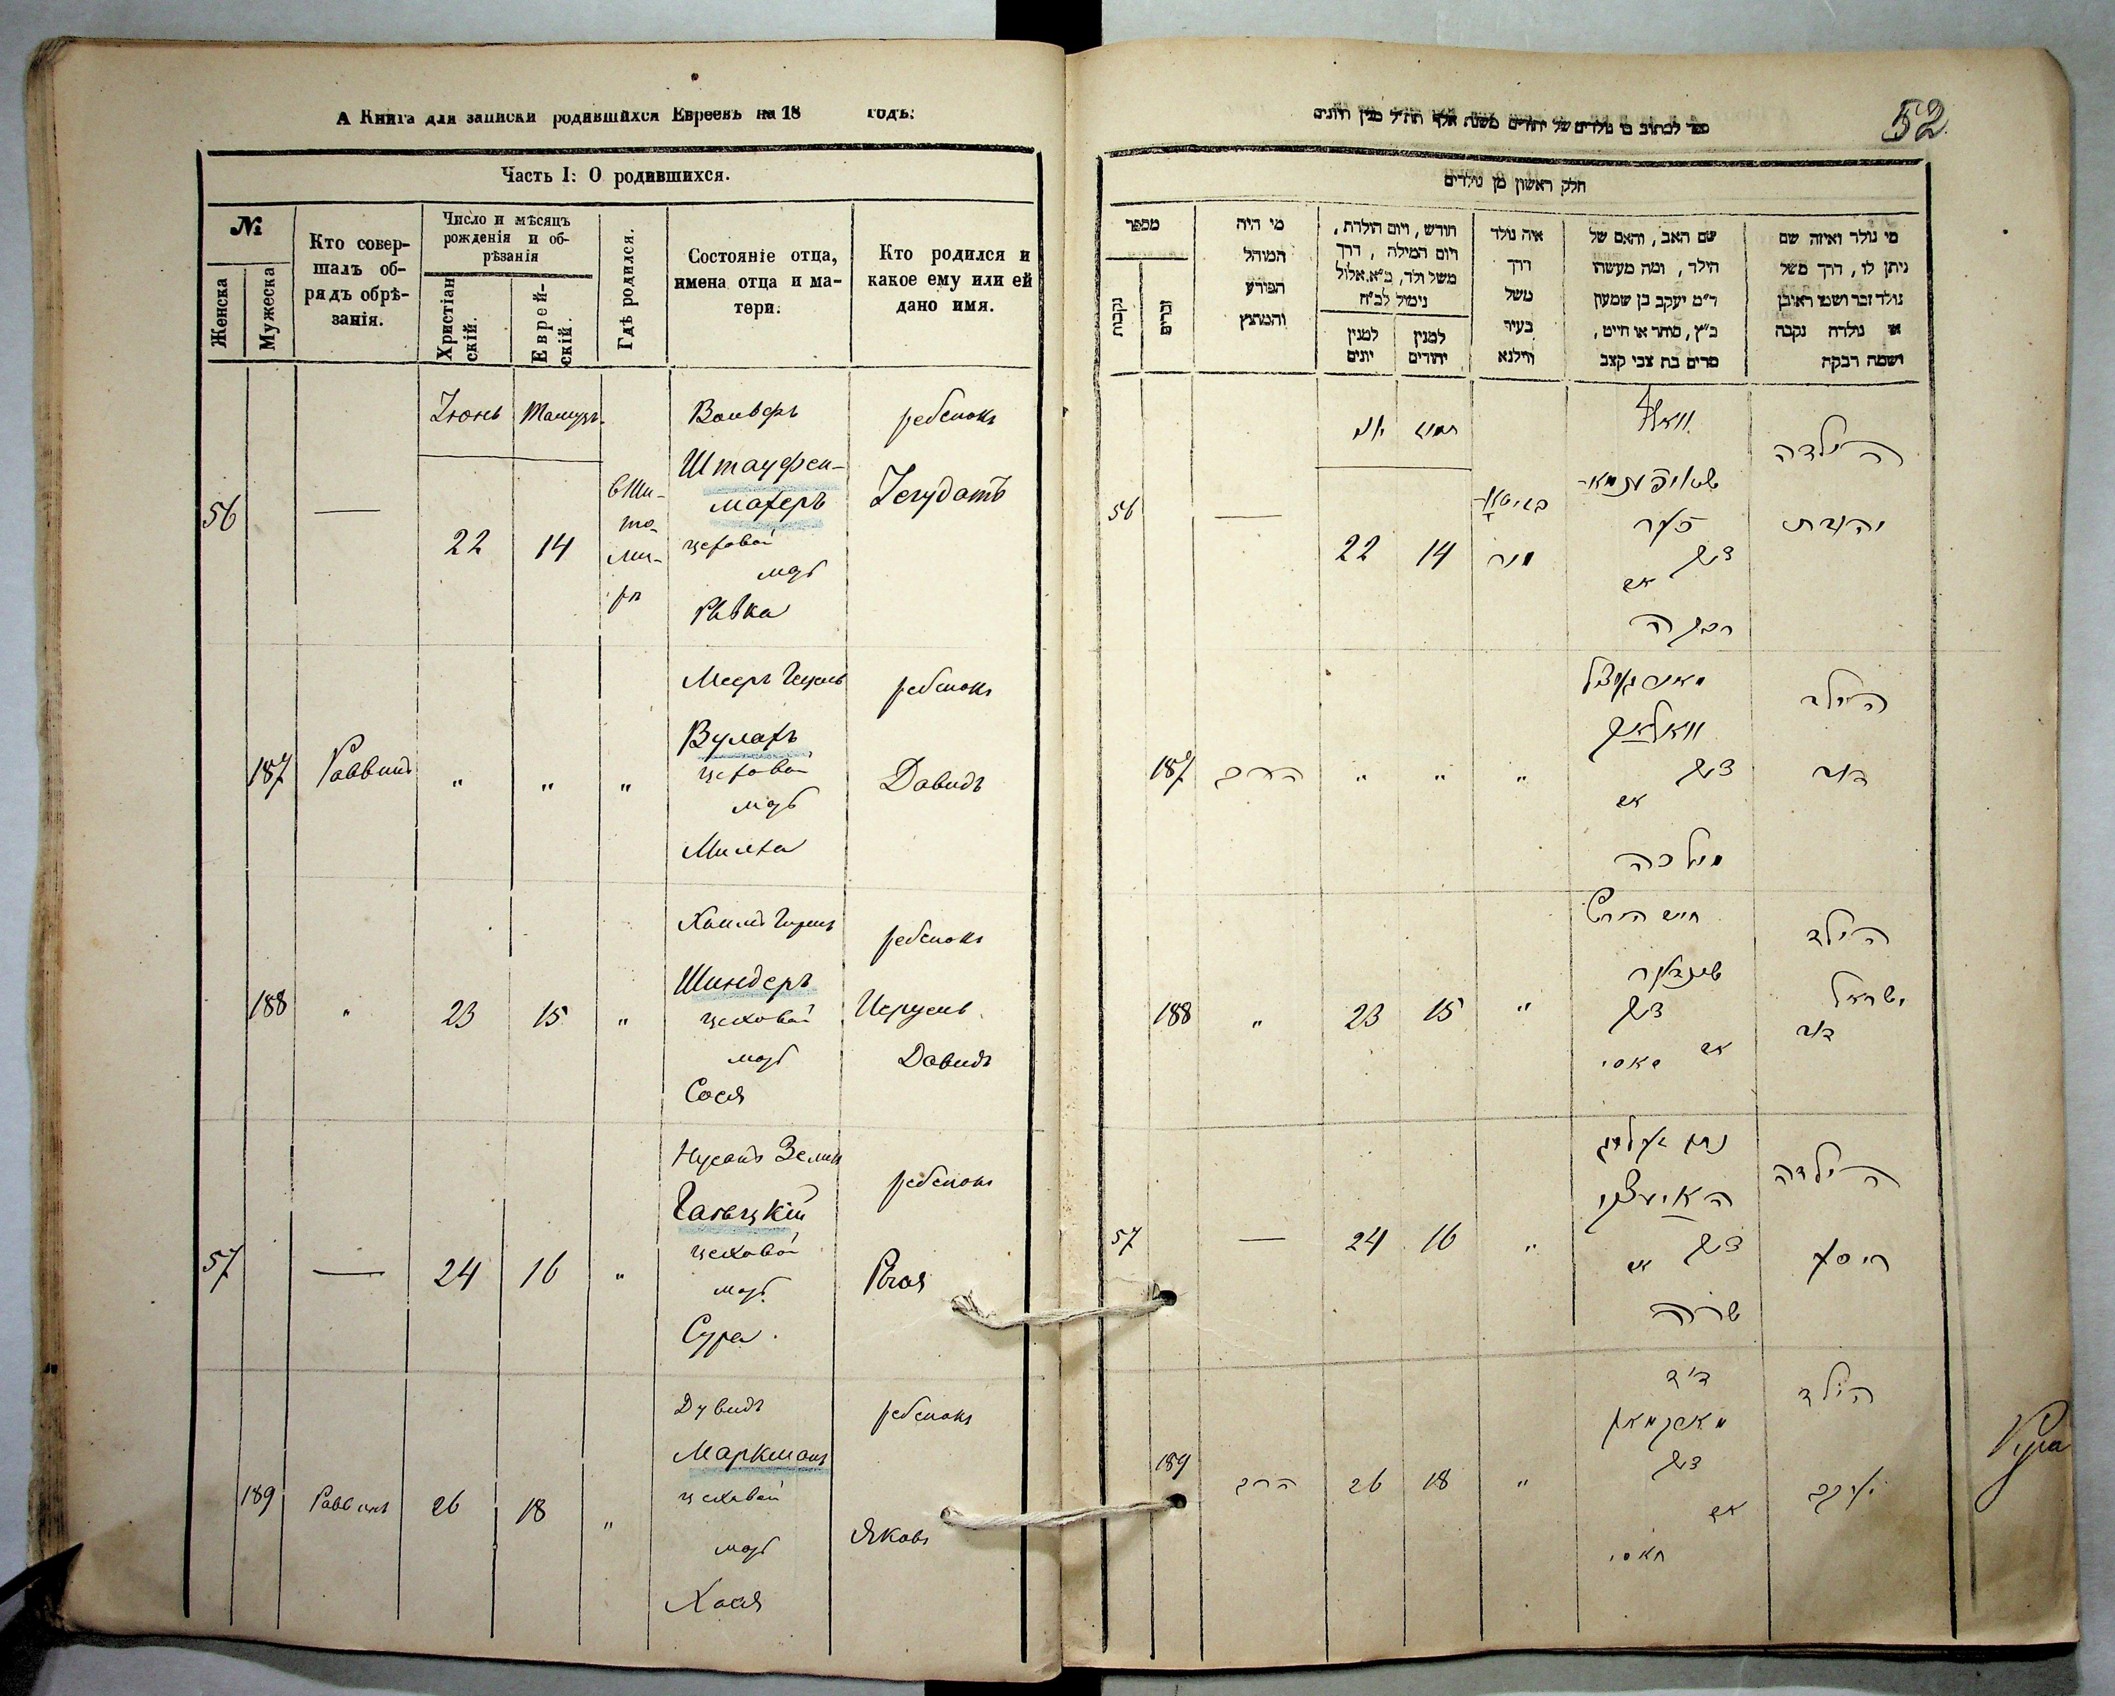 А Книга для записки родившихся Евреевъ на 18 годъ.
Часть I: О родившихся.
№
Женска
Мужеска
Кто совер-
шалъ об-
рядъ обрѣ-
занія.
Число и мѣсяцъ
рожденія и об-
рѣзанія
Христіан
скій.
Еврей-
скій.
Гдѣ родился.
Состояніе отца,
имена отца и ма-
тери.
Кто родился и
какое ему или ей
дано имя.
56
—
Іюнь
22
Тамузъ
14
вЖи-
то-
ми-
рѣ
Вольфъ
Штауфен-
махеръ
цеховой
мать
Ривка
ребенокъ
Іегудатъ
187
Раввинъ
"
"
"
Меер
Вулахъ
цеховой
мать
Милка
ребенокъ
Давидъ
188
"
23
15
"
Хаимъ Гершъ
Шиндеръ
цеховой
мать
Сося
ребенокъ
Исруель
Давидъ
57
—
24
16
"
Нусанъ Зелик
цеховой
мать
Сура
ребенокъ
189
Раввинъ
26
18
"
Дувидъ
Маркманъ
цеховой
мать
Хася
ребенокъ
Яковъ
52
ספר לכתוב בו נולדים של יהודים משנת אלף תת״ל מנין היונים
חלק ראשון מן נולדים
מספר
נקבות
זכרים
מי היה
המוהל
הפורע
והמוצץ
חודש, ויום הולדת,
ויום המילה, דרך
משל ולד, כ״א אלול
נימול לכ״ח
למנין
יונים
למנין
יהודים
איה נולד
דרך
משל
בעיר
ווילנא
שם האב, והאם של
הילד, ומה מעשהו
ר״מ יעקב בן שמעון
כ״ץ, סוחר או חייט,
מרים בת צבי קצב
מי נולד ואיזה שם
ניתן לו, דרך משל
נולד זכר ושמו ראובן
או נולדה נקבה
ושמה רבקה
56
—
יוני
22
תמוז
14
וואלף
רבקה
הילדה
יהודת
187
הרב
"
"
"
מילכה
הילד
דוד
188
"
23
15
"
חיים הירש
שינדער
הילד
ישראל
דוד
57
—
24
16
"
שרה
הילדה
189
הרב
26
18
"
דוד
מארקמאן
חאסי
הילד
יעקב